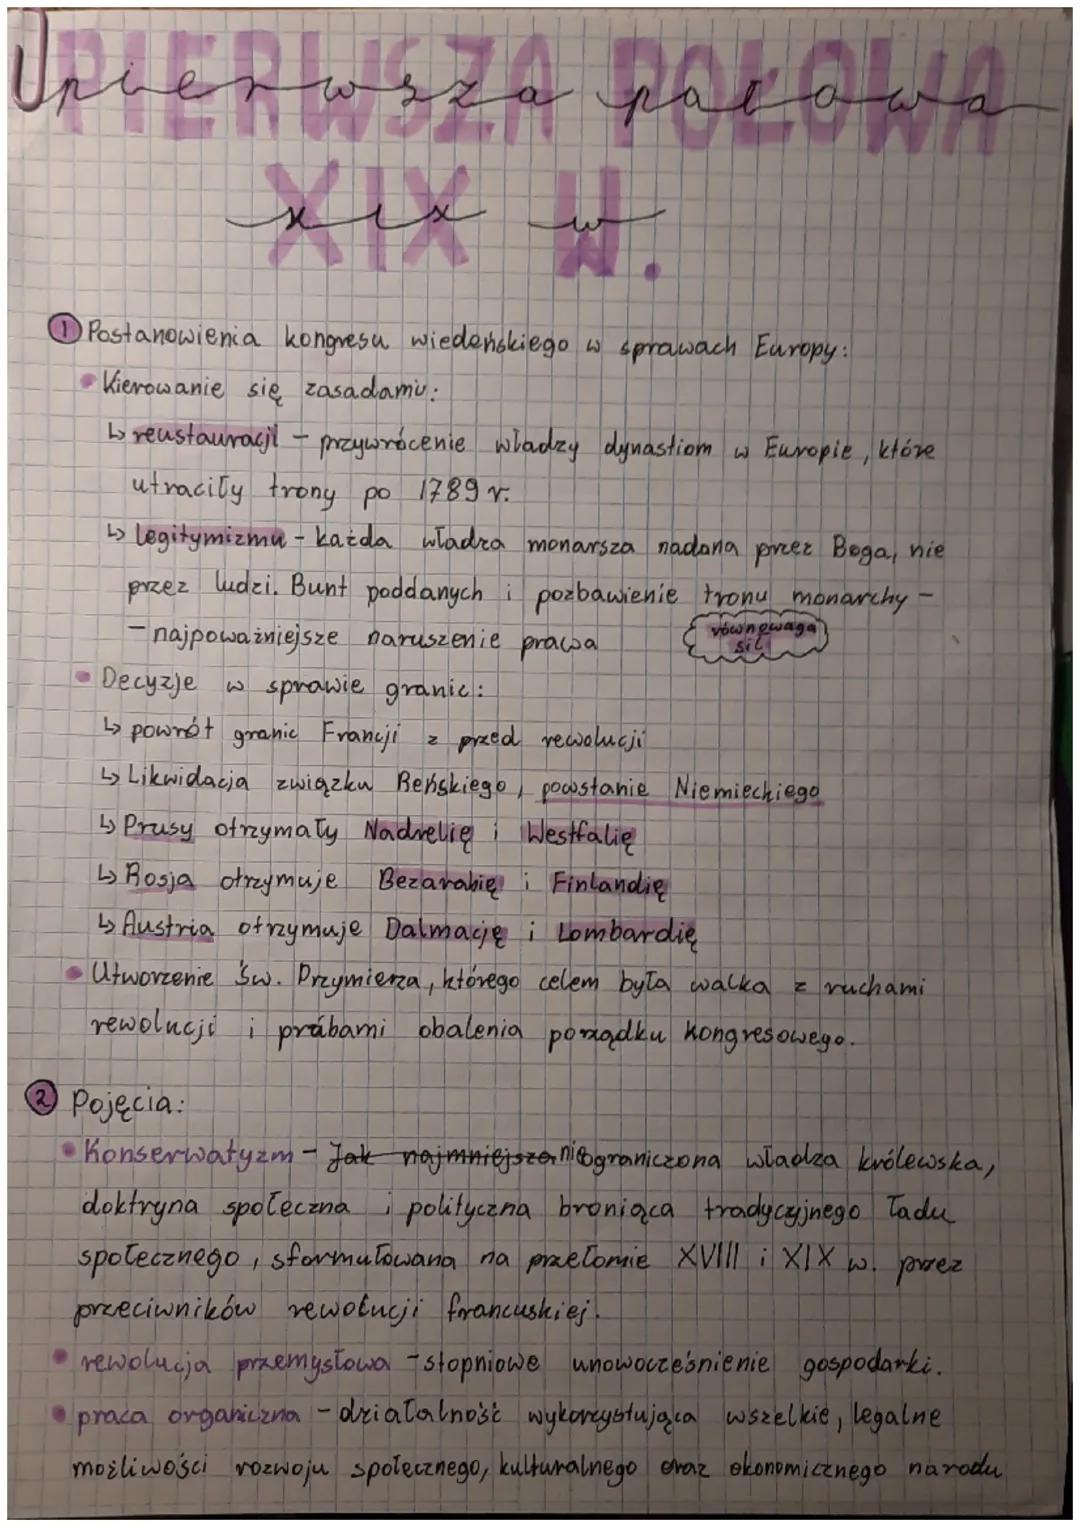 PIERWSZA POŁOWA
pierwsza połowa
XIX W.
xix w
1 Postanowienia kongresu wiedeńskiego w sprawach Europy:
• Kierowanie się zasadami:
↳ reustauracji – przywrócenie władzy dynastiom w Europie, które
utraciły trony po 1789 r.
↳ legitymizmu – każda władza monarsza nadana przez Boga, nie
przez ludzi. Bunt poddanych i pozbawienie tronu monarchy –
– najpoważniejsze naruszenie prawa
równowaga
sił
• Decyzje w sprawie granic:
↳ powrót granic Francji z przed rewolucji
↳ Likwidacja związku Reńskiego, powstanie Niemieckiego
↳ Prusy otrzymały Nadrelię i Westfalię
↳ Rosja otrzymuje Bezarabię i Finlandię
↳ Austria otrzymuje Dalmację i Lombardię
• Utworzenie Św. Przymierza, którego celem była walka z ruchami
rewolucji i próbami obalenia porządku kongresowego.
2 Pojęcia:
• Konserwatyzm – Jak najmniejsza nieograniczona władza królewska,
doktryna społeczna i polityczna broniąca tradycyjnego ładu
społecznego, sformułowana na przełomie XVIII i XIX w. przez
przeciwników rewolucji francuskiej.
• rewolucja przemysłowa – stopniowe unowocześnienie gospodarki.
• praca organiczna – działalność wykorzystująca wszelkie, legalne
możliwości rozwoju społecznego, kulturalnego oraz ekonomicznego narodu